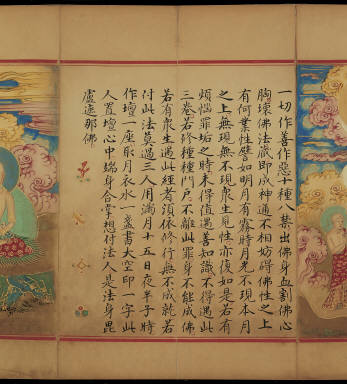 一切作善作惡十種八禁出佛身血割佛心
胸壞佛法藏即成神通不相妨碍佛性之上
有何業性譬如明月有霧時月光不現本月
之上無現無不現衆生見性亦復如是若有
煩惱罪垢之時未得值遇善知識不得遇此
三卷若修種種門户不離此罪身不能成佛
若有衆生遇此經者須依修行無不成就若
付此法莫過三人用滿月十五日夜半子時
作壇一座取月衣水一盞書大空印一字此
人置壇心中端身合掌想付法人是法身毘
盧遮那佛